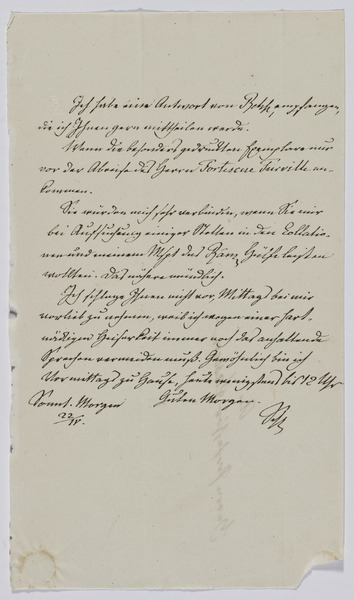 Ich habe eine Antwort von Böhtl. empfangen,
die ich Ihnen gern mittheilen werde.
Wenn die besonders gedruckten Exemplare nur
vor der Abreise des Herrn Fortescue an-
kommen.
Sie würden mich sehr verbinden, wenn Sie mir
bei Aufsuchung einiger Stellen in den Collatio-
nen und meinem Mspt des Ram. Hülfe leisten
wollten. Das nähere mündlich.
Ich schlage Ihnen nicht vor, Mittags bei mir
vorlieb zu nehmen, weil ich wegen einer hart-
näckigen Heiserkeit immer noch das anhaltende
Sprechen vermeiden muß. Gewöhnlich bin ich
Vormittags zu Hause, heute wenigstens bis 12 Uhr
Sonnt. Morgen Guten Morgen.
22/IV. Schl